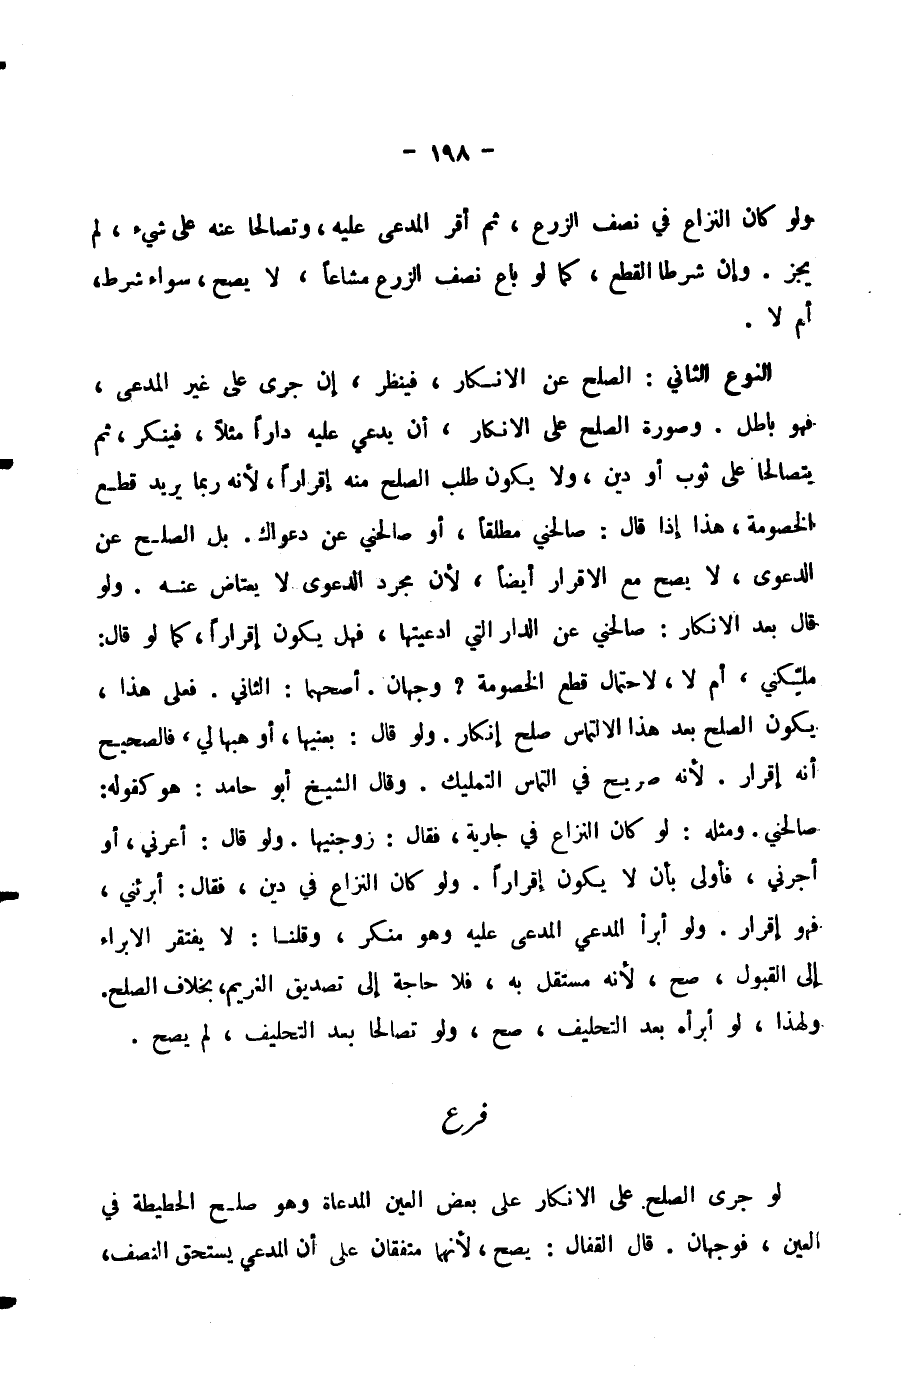 - ١٩٨ -
ولو كان النزاع في نصف الزرع ، ثم أقر المدعى عليه ، وتصالحا عنه على شيء ، لم
يجز . وإن شرطا القطع ، كما لو باع نصف الزرع مشاعاً ، لا يصح ، سواء شرط ،
أم لا .
النوع الثاني : الصلح عن الانكار ، فينظر ، إن جرى على غير المدعى ،
فهو باطل . وصورة الصلح على الانكار ، أن يدعي عليه داراً مثلاً ، فينكر ، ثم
يتصالحا على ثوب أو دين ، ولا يكون طلب الصلح منه إقراراً ، لأنه ربما يريد قطع
الخصومة ، هذا إذا قال : صالحني مطلقاً ، أو صالحني عن دعواك . بل الصلح عن
الدعوى ، لا يصح مع الاقرار أيضاً ، لأن مجرد الدعوى لا يعتاض عنه . ولو
قال بعد الانكار : صالحني عن الدار التي ادعيتها ، فهل يكون إقراراً ، كما لو قال:
ملِّكني ، أم لا ، لاحتمال قطع الخصومة ؟ وجهان . أصحهما : الثاني . فعلى هذا ،
يكون الصلح بعد هذا الالتماس صلح إنكار . ولو قال : بعنيها ، أو هبها لي ، فالصحيح
أنه إقرار . لأنه صريح في التماس التمليك . وقال الشيخ أبو حامد : هو كقوله:
صالحني . ومثله : لو كان النزاع في جارية ، فقال : زوجنيها . ولو قال : أعرني ، أو
أجرني ، فأولى بأن لا يكون إقراراً . ولو كان النزاع في دين ، فقال : أبرئني ،
فهو إقرار . ولو أبرأ المدعي المدعى عليه وهو منكر ، وقلنا : لا يفتقر الابراء
إلى القبول ، صح ، لأنه مستقل به ، فلا حاجة إلى تصديق الغريم، بخلاف الصلح.
ولهذا ، لو أبرأه بعد التحليف ، صح ، ولو تصالحا بعد التحليف ، لم يصح .
فرع
لو جرى الصلح على الانكار على بعض العين المدعاة وهو صلح الحطيطة في
العين ، فوجهان . قال القفال : يصح ، لأنهما متفقان على أن المدعي يستحق النصف،